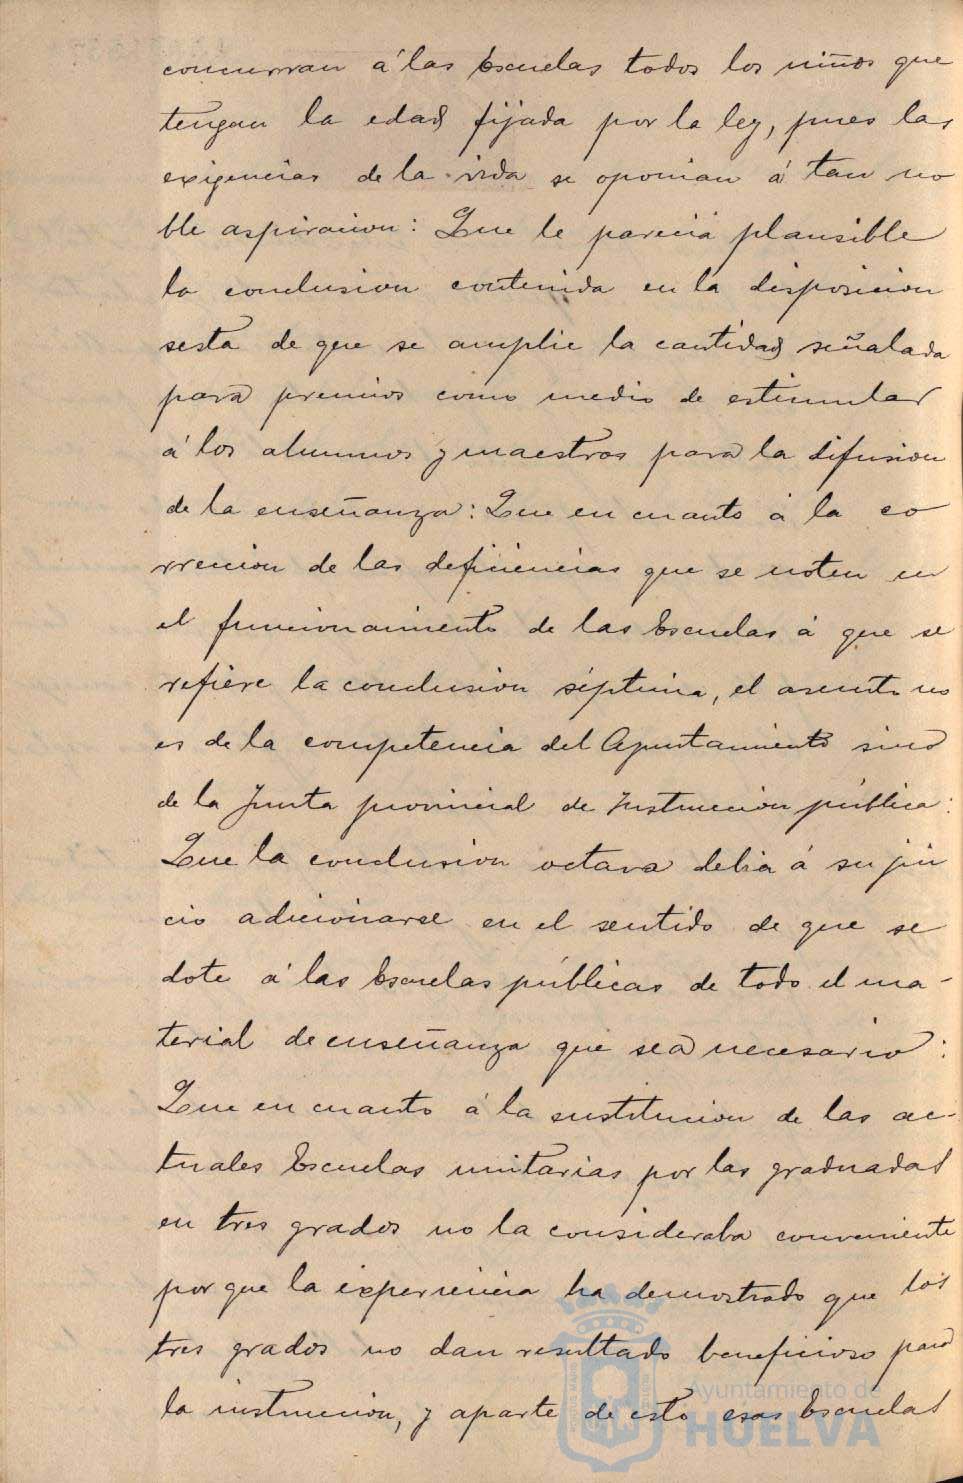 concurran á las Escuelas todos los niños que
tengan la edad fijada por la ley, pues las
exigencias de la vida se oponian á tan no
ble aspiracion: Que le parecia plausible
la conclusion contenida en la disposicion
sesta de que se amplie la cantidad señalada
para premios como medio de estimular
á los alumnos y maestros para la difusion
de la enseñanza: Que en cuanto á la co
rreccion de las deficiencias que se noten en
el funcionamiento de las Escuelas á que se
refiere la conclusion séptima, el asunto no
es de la competencia del Ayuntamiento sino
de la Junta provincial de Instruccion pública:
Que la conclusion octava debia á su jui
cio adicionarse en el sentido de que se
dote á las Escuelas públicas de todo el ma-
terial de enseñanza que sea necesario:
Que en cuanto á la sustitucion de las ac-
tuales Escuelas unitarias por las graduadas
en tres grados no la consideraba conveniente
por que la experiencia ha demostrado que los
tres grados no dan resultado beneficioso para
la instruccion, y aparte de esto esas Escuelas
Ayuntamiento de
HUELVA